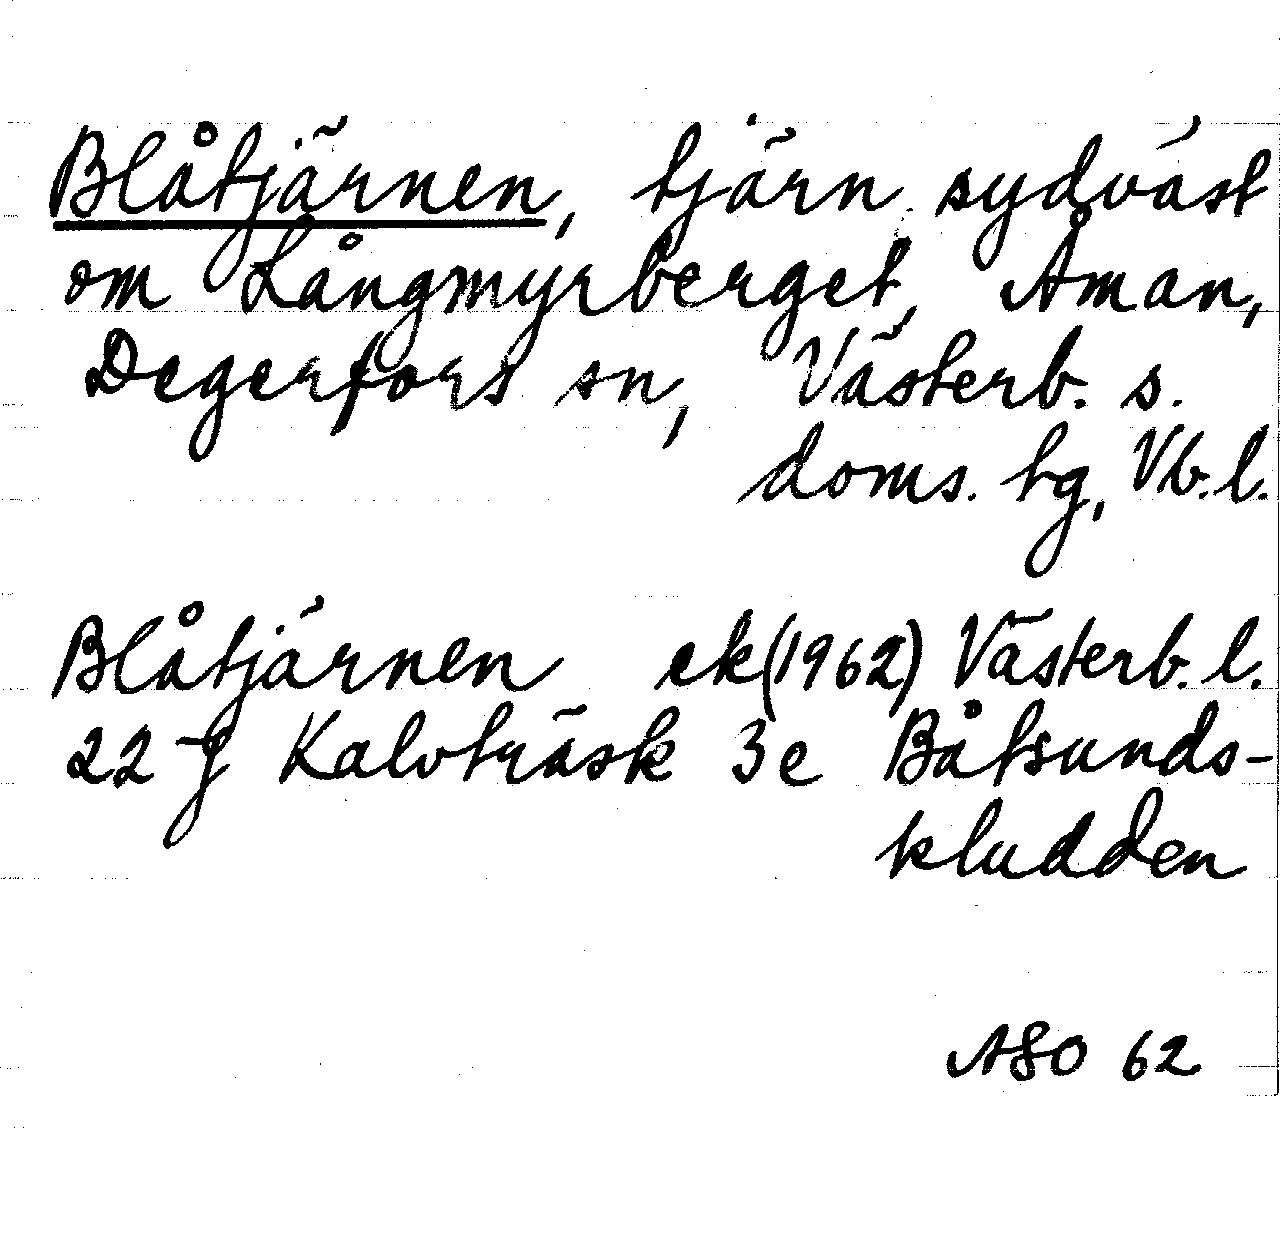 Blåtjärnen, tjärn sydväst
om Långmyrberget, Åman,
Degerfors sn, Västerb. s.
doms. hg, Vb. l.
Blåtjärnen ek (1962) Västerb. l.
22 J Kalvträsk 3e Båtsunds-
kludden
ASO 62